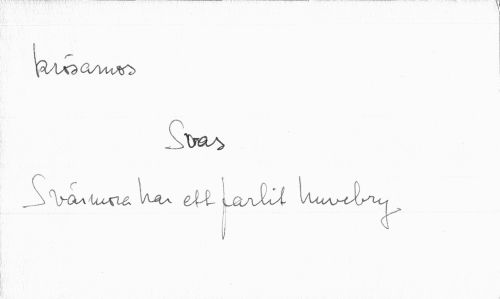 krösamos
Svas
Svärmora har ett farlit huvebry